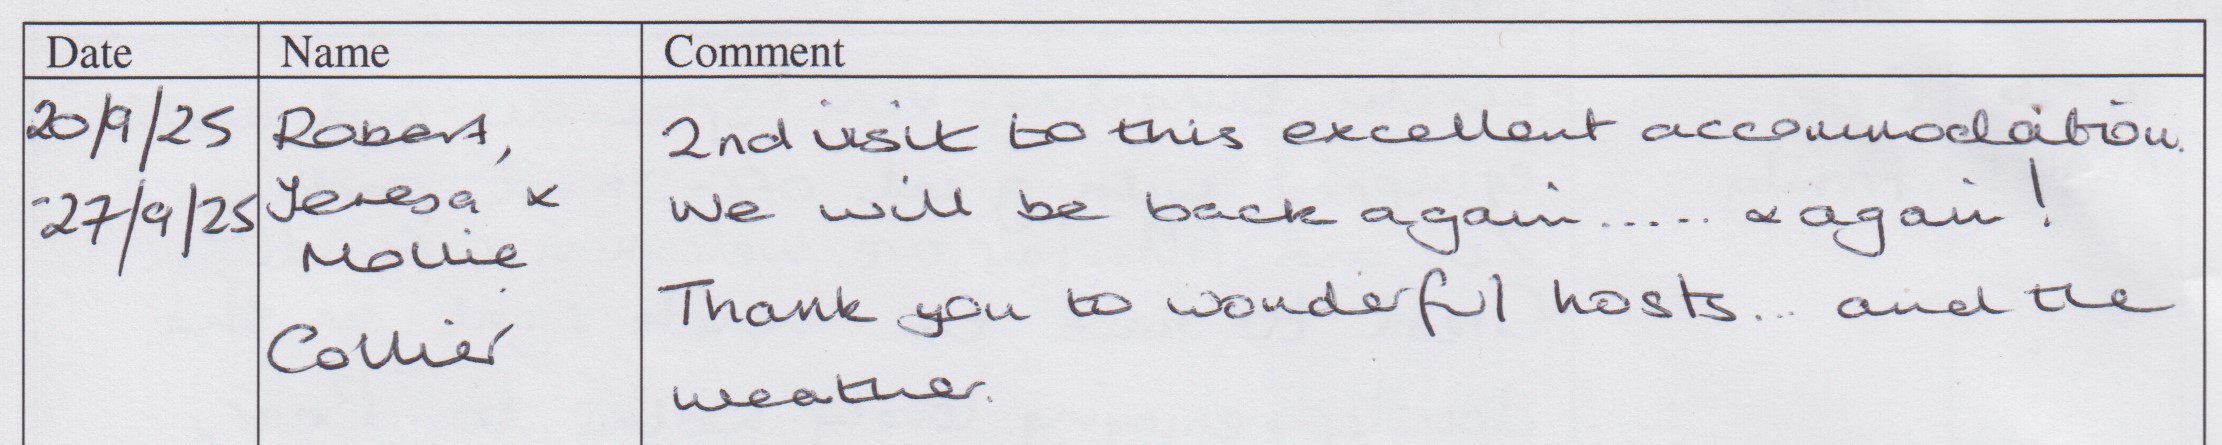 Date Name Comment
20/9/25 Robert, 2nd visit to this excellent accommodation.
-27/9/25 Teresa & We will be back again..... & again!
Mollie
Thank you to wonderful hosts... and the
Collier
weather.